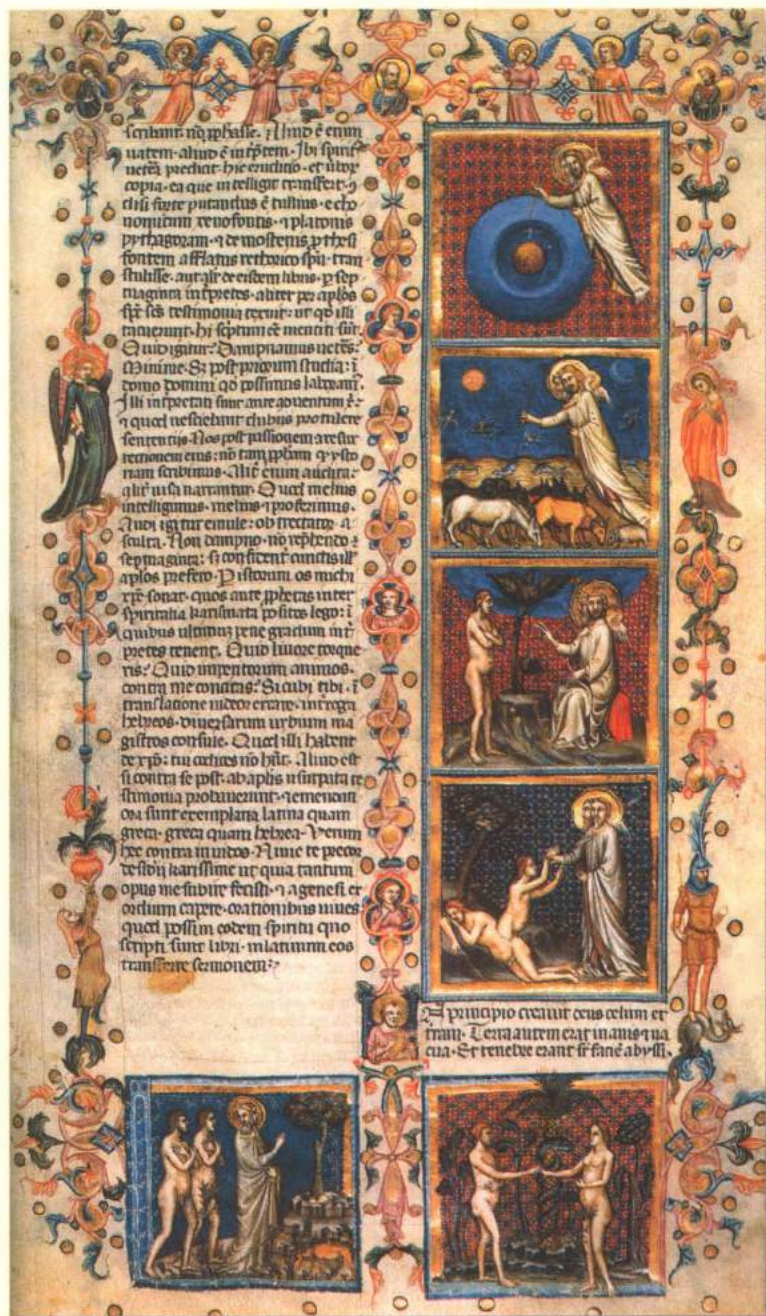 scribunt. nō pphasse. Aliud ē enim
uatem. aliud ē intp̄tem. Ibi spirit᷒
uētā predicit. hic erudicio. et ūbor᷒
copia. ea que intelligit transfert.
nisi forte putandus ē tullius. echo
nomicum xenofontis. ⁊ platonis
pytagoram. ⁊ demostenis p̱thesi
fontem afflatus rethorico sp̄u tran
stulisse. aut alit̄ de eisdem libris. p̱ sep
tuaginta intp̄retes. aliter per ap̄los
sp̄c sc̄s testimonia texuit. ut qd̄ illi
tacuerunt. hi scriptum eē mentiti sūt.
Quid igitur? Dampnamus uetēs?
Minime. S̄ post priorum studia. ī
domo domini qd̄ possumus laboram᷒.
Illi intp̄retati sunt ante aduentum
⁊ quod nesciebant dubiis protulere
sententiis. Nos post passionem ⁊ resur
rectionem eius. nō tam pphiam qͣ̄ ysto
riam scribimus. Alit̄ enim audita.
alit̄ uisa narrantur. Quod melius
intelligimus. melius ⁊ proferimus.
Audi igitur emule. obtrectator a
sculta. Non dampno. nō rep̄hendo
septuaginta. s̄ confident̄ cunctis ill᷒
ap̄los prefero. P̱ istorum os michi
xp̄c sonat. quos ante pphetas inter
spiritalia karismata positos lego. ī
quibus ultimū pene gradum int̄
pretes tenent. Quid liuore torque
ris? Quid imperitorum animos.
contra me concitas? Sicubi tibi. ī
translatione uideor errare. interroga
hebreos. diuersarum urbium ma
gistros consule. Quod illi habent
de xp̄o. tui codices nō hn̄t. Aliud est
si contra se post. ab ap̄lis usurpata te
stimonia probauerunt. ⁊ emendati
ora sunt exemplaria latina quam
greca. greca quam hebrea. Verum
hec contra inuidos. Nunc te precor
desid̄i karissime ut quia tantum
opus me subire fecisti. ⁊ a genesi ex
ordium capere. orationibus iuues
quod possim eodem spiritu quo
scripti sunt libri. in latinum eos
transferre sermonem.
A principio creauit deus celum et
t̄ram. Terra autem erat inanis ⁊ ua
cua. Et tenebre erant sr̄ faciē abyssi.